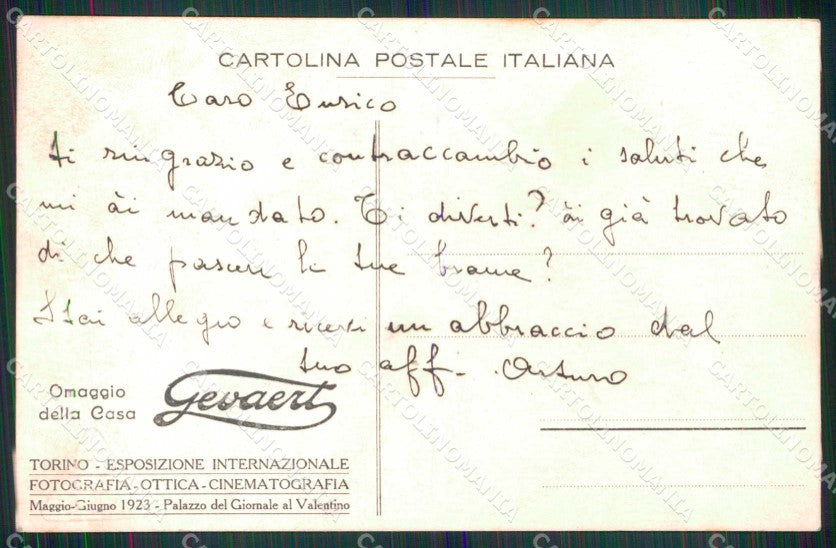 CARTOLINA POSTALE ITALIANA
Caro Enrico
ti ringrazio e contraccambio i saluti che
mi ài mandato. Ti diverti? ài già trovato
di che pascere le tue brame?
Stai allegro e ricevi un abbraccio dal
tuo aff. Arturo
Omaggio
della Casa
Gevaert
TORINO - ESPOSIZIONE INTERNAZIONALE
FOTOGRAFIA - OTTICA - CINEMATOGRAFIA
Maggio-Giugno 1923 - Palazzo del Giornale al Valentino
CARTOLINOMANIA